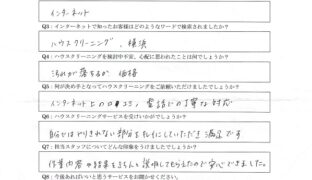 インターネット
Q3：インターネットで知ったお客様はどのようなワードで検索されましたか？
ハウスクリーニング、横浜
Q4：ハウスクリーニングを検討中不安、心配に思われたことは何でしょうか？
汚れが落ちるか 価格
Q5：何が決め手となってハウスクリーニングをご依頼いただけましたでしょうか？
インターネット上の口コミ、電話での丁寧な対応
Q6：ハウスクリーニングサービスを受けいかがでしょうか？
自分ではできない部分をきれいにしていただき満足です
Q7：担当スタッフについてどんな印象をうけましたでしょうか？
作業内容の結果をきちんと説明してもらえたので安心できました。
Q8：今後あればいいと思うサービスをお聞かせください。